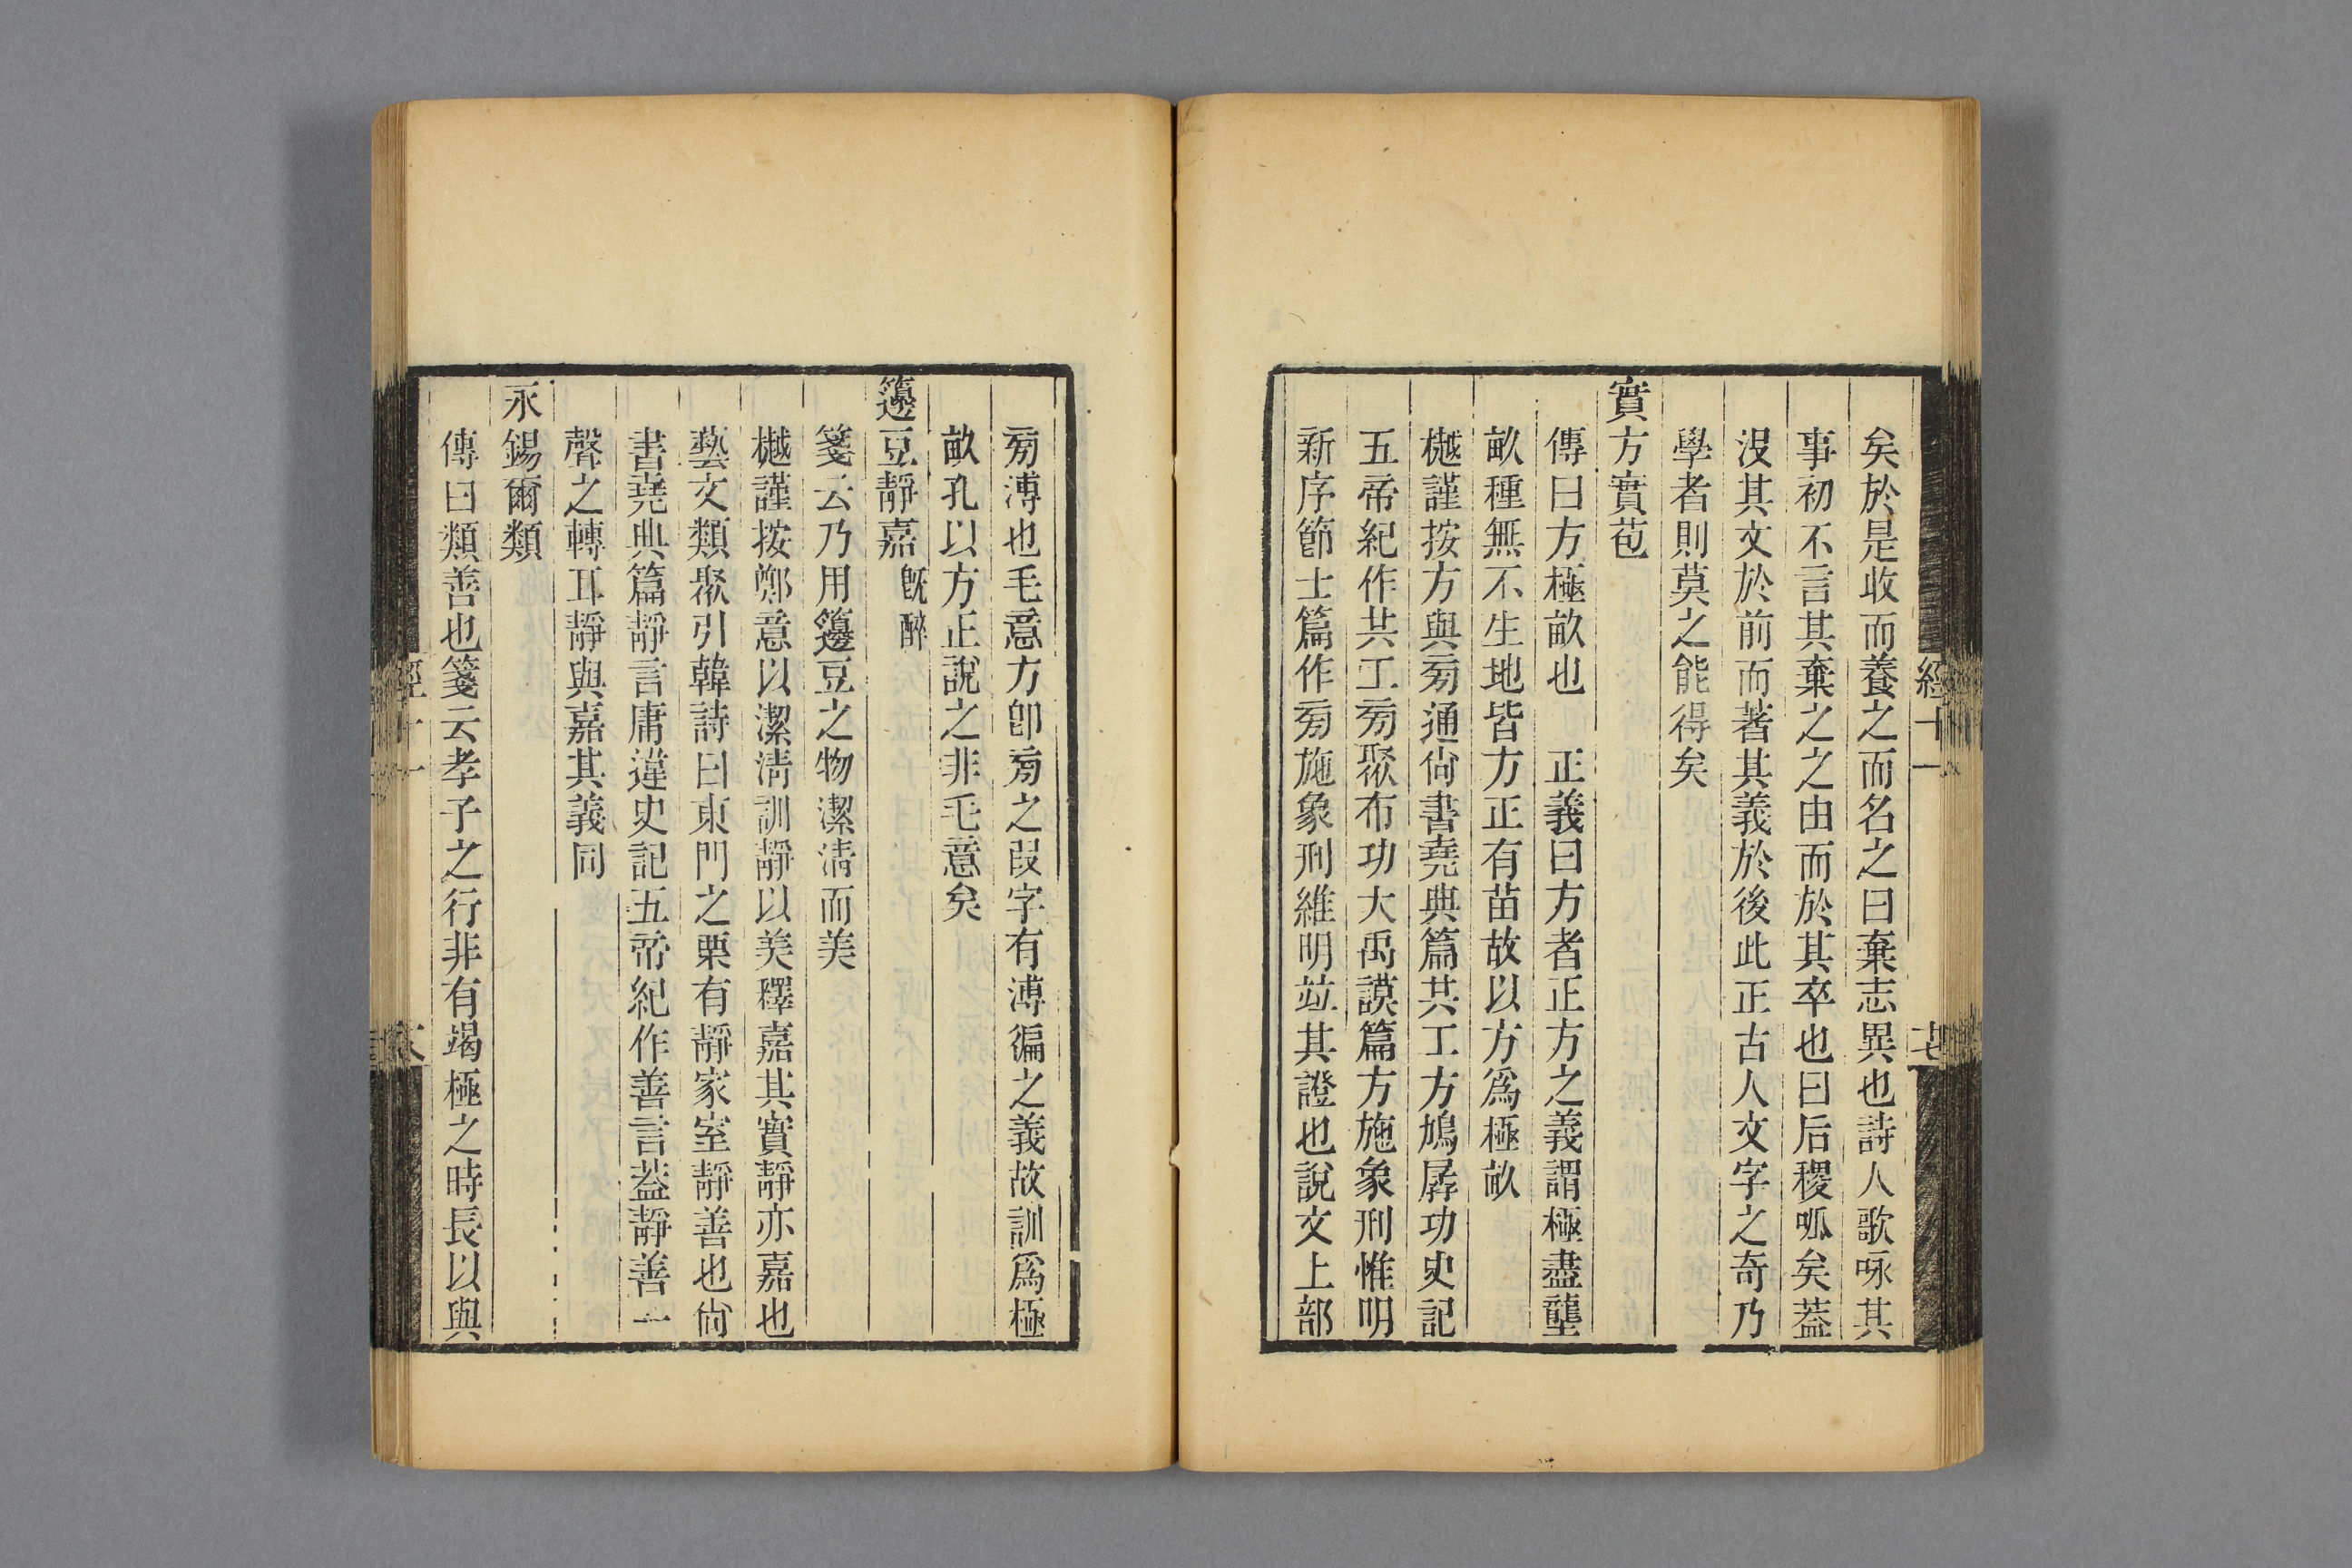 矣於是收而養之而名之曰棄志異也詩人歌咏其
事初不言其棄之之由而於其卒也曰后稷呱矣葢
沒其文於前而著其義於後此正古人文字之奇乃
學者則莫之能得矣
實方實苞
傳曰方極畝也　正義曰方者正方之義謂極盡壟
畝種無不生地皆方正有苗故以方爲極畝
樾謹按方與㫄通尙書堯典篇共工方鳩孱功史記
五帝紀作共工㫄聚布功大禹謨篇方施象刑惟明
新序節士篇作㫄施象刑維明竝其證也說文上部
㫄溥也毛意方卽㫄之叚字有溥徧之義故訓爲極
畝孔以方正說之非毛意矣
籩豆靜嘉　旣醉
箋云乃用籩豆之物潔淸而美
樾謹按鄭意以潔淸訓靜以美釋嘉其實靜亦嘉也
藝文類聚引韓詩曰東門之栗有靜家室靜善也尙
書堯典篇靜言庸違史記五帝紀作善言葢靜善一
聲之轉耳靜與嘉其義同
永錫爾類
傳曰類善也箋云孝子之行非有竭極之時長以與
經十一
十七
經十一